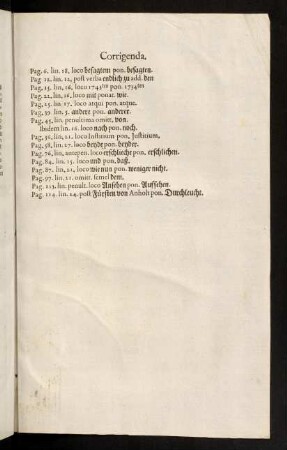 Corrigenda.
Pag. 6. lin. 18. loco besagtem pon. besagten.
Pag. 12. lin. 12. post verba endlich zu add. den
Pag. 15. lin. 16. loco 1743 pon. 1734
Pag. 22. lin. 16. loco mit ponat. wie.
Pag. 25. lin. 17. loco atqui pon. atque.
Pag. 39. lin. 5. andere pon. anderer.
Pag. 45. lin. penultima omitt. von.
Ibidem lin. 18. loco nach pon. noch.
Pag. 56. lin. 21. loco Instinium pon. Justinium.
Pag. 58. lin. 27. loco beyde pon. beyder.
Pag. 76. lin. antepen. loco erschliecht pon. erschlichen.
Pag. 84. lin. 15. loco und pon. daß.
Pag. 87. lin. 21. loco wie nun pon. weniger nicht.
Pag. 97. lin. 21. omitt. semel dem.
Pag. 113. lin. penult. loco Ansehen pon. Aufsehen.
Pag. 114. lin. 24. post Fürsten von Anholt pon. Durchleucht.